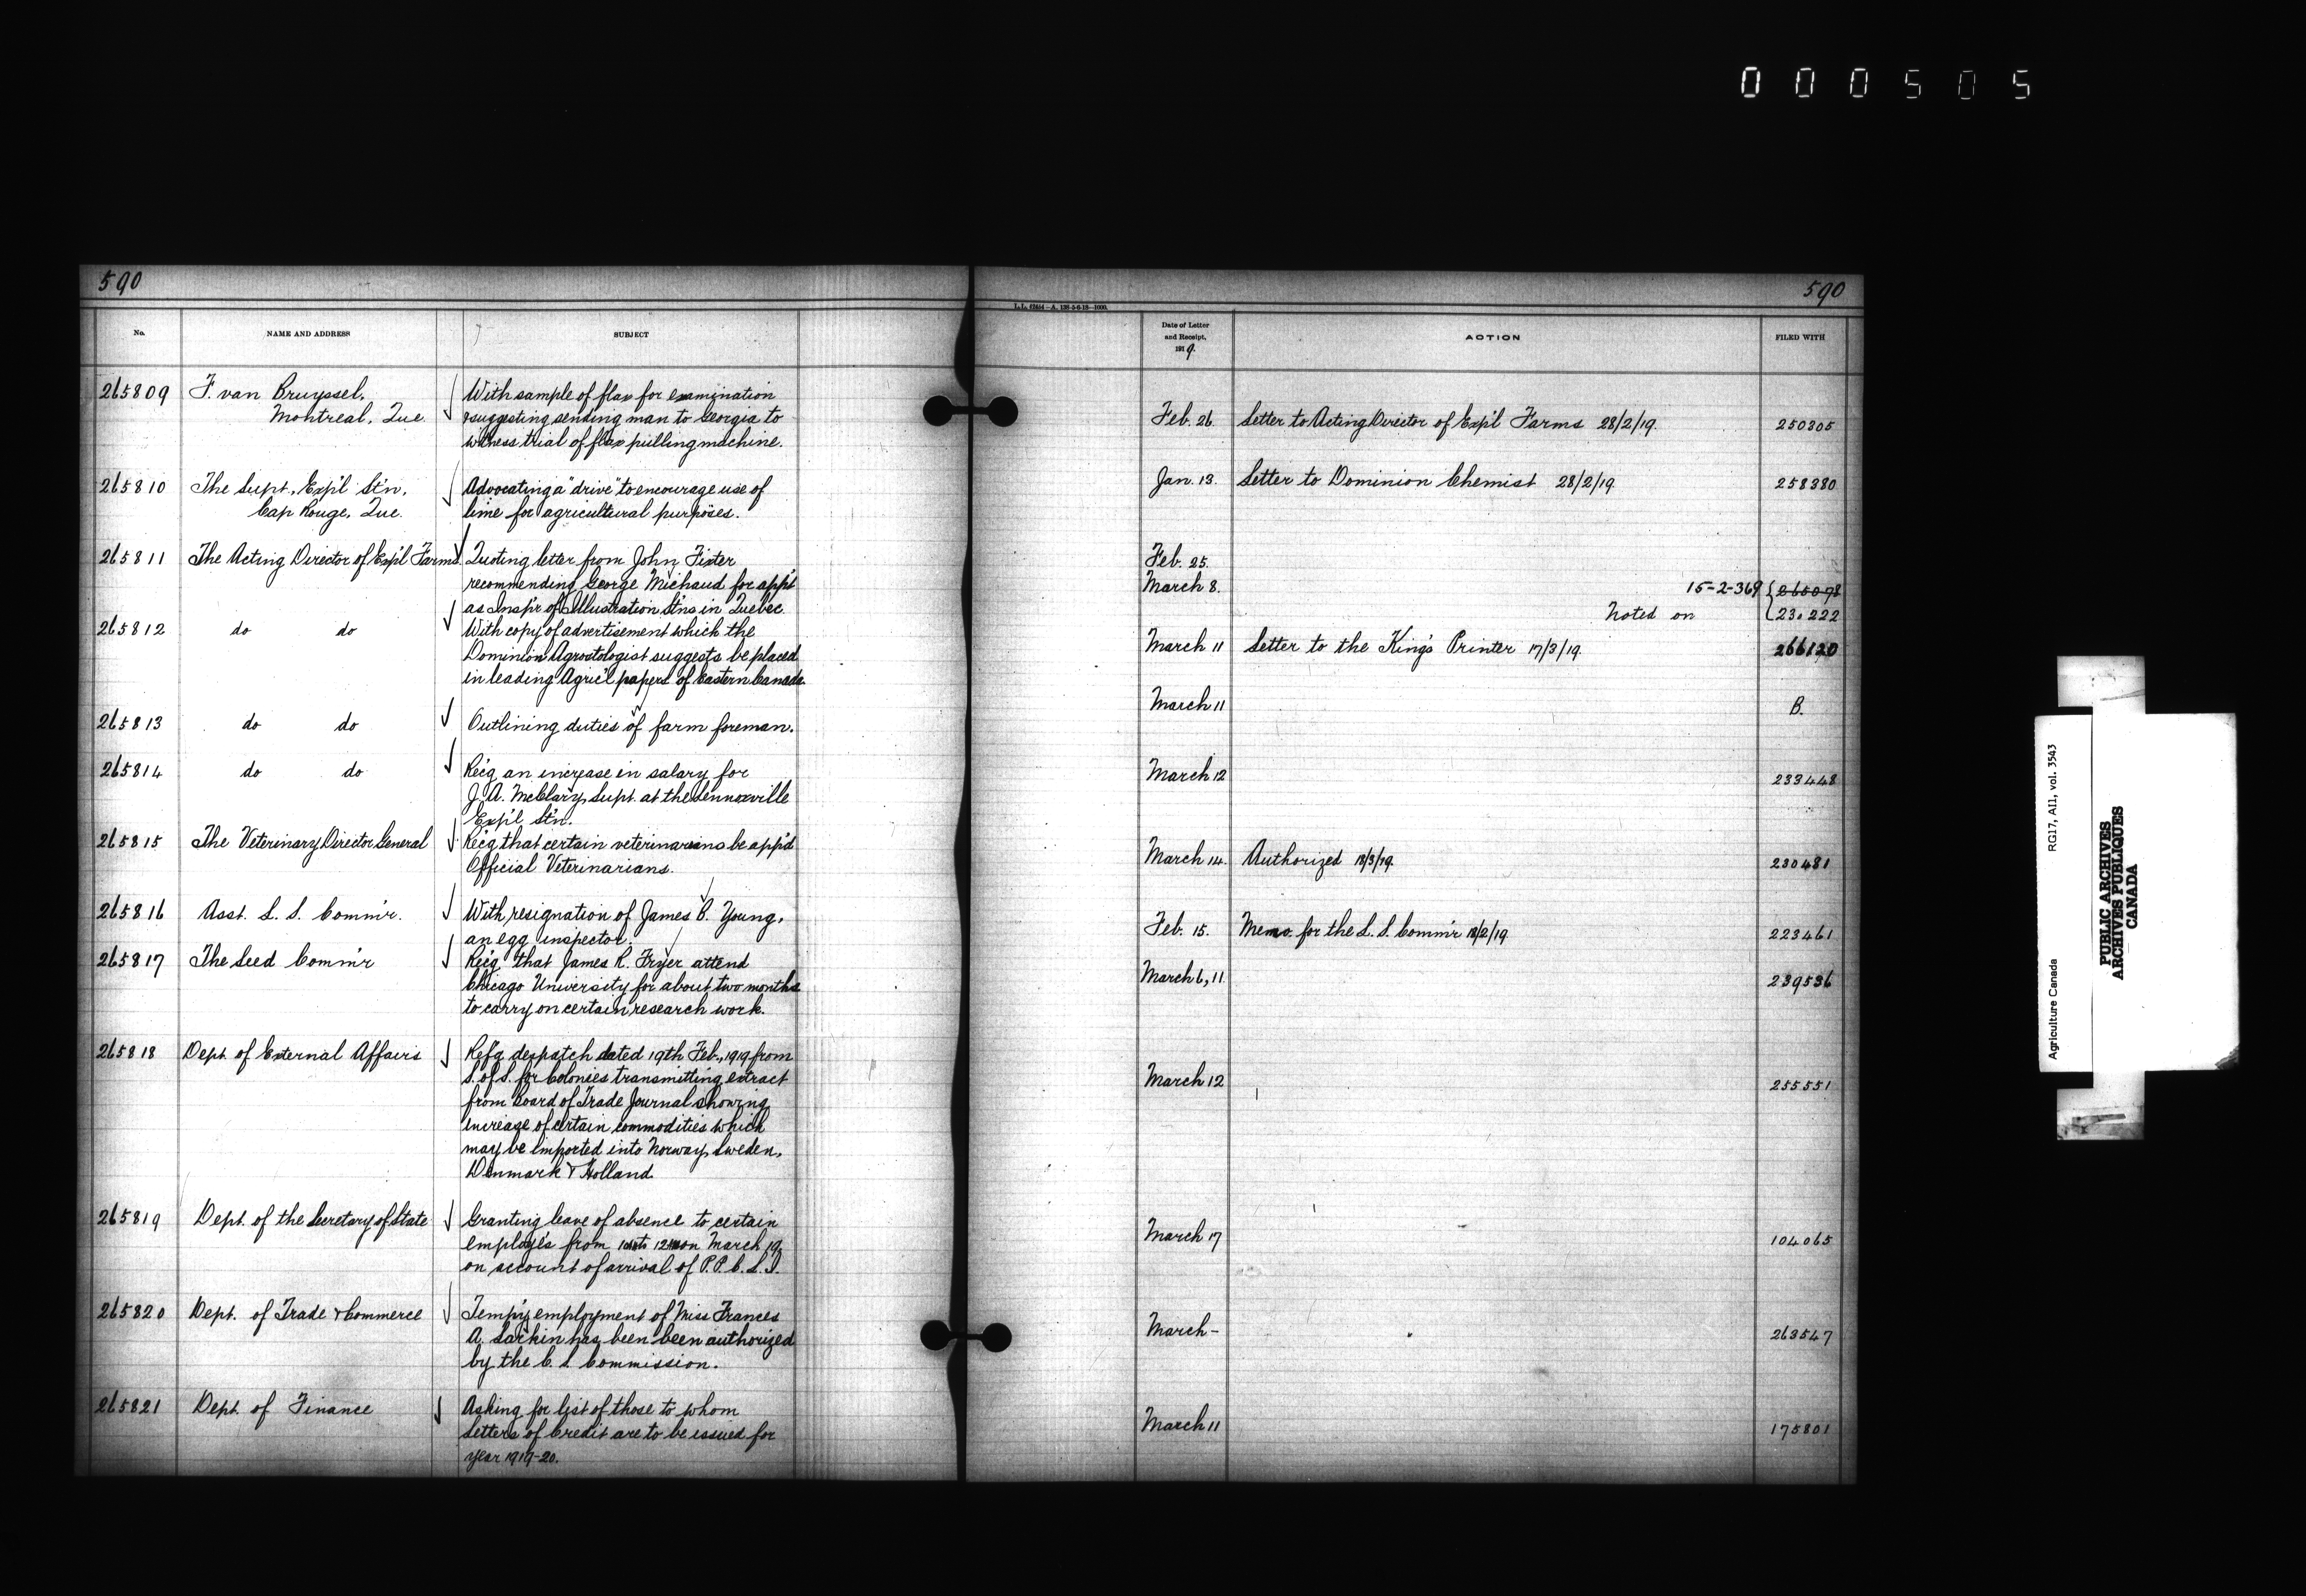 000505
590
No.
NAME AND ADDRESS
SUBJECT
265809 F. van Bruyssel, With sample of flax for examination
Montreal, Que. & suggesting sending man to Georgia to
witness trial of flax pulling machine.
265810 The Supt., Exp'l Stn, Advocating a "drive" to encourage use of
Cap Rouge, Que. lime for agricultural purposes.
265811 The Acting Director of Exp'l Farms Quoting letter from John Fixter
recommending George Michaud for app't
as Insp'r of Illustration Stns in Quebec
265812 do do With copy of advertisement which the
Dominion Agrostologist suggests be placed
in leading Agric'l papers of Eastern Canada.
265813 do do Outlining duties of farm foreman.
265814 do do Rec'g an increase in salary for
J. A. McClary, Supt. at the Lennoxville
Exp'l Stn.
265815 The Veterinary Director General Rec'g that certain veterinarians be app'd
Official Veterinarians.
265816 Asst. L. S. Comm'r. With resignation of James B. Young,
an egg inspector.
265817 The Seed Comm'r Rec'g that James R. Fryer attend
Chicago University for about two months
to carry on certain research work.
265818 Dept. of External Affairs Ref'g despatch dated 19th Feb., 1919 from
S. of S. for Colonies transmitting extract
from Board of Trade Journal showing
increase of certain commodities which
may be imported into Norway, Sweden,
Denmark & Holland.
265819 Dept. of the Secretary of State Granting leave of absence to certain
employés from to on March 19,
on account of arrival of P.P.C.L.I.
265820 Dept. of Trade & Commerce Temp'y employment of Miss Frances
A. Larkin has been been authorized
by the C. S. Commission.
265821 Dept. of Finance Asking for list of those to whom
Letters of Credit are to be issued for
year 1919-20.
590
Date of Letter
and Receipt,
1919.
ACTION
FILED WITH
Feb. 26 Letter to Acting Director of Exp'l Farms 28/2/19. 250305
Jan. 13. Letter to Dominion Chemist 28/2/19. 258380
Feb. 25.
March 8. 15-2-369 265098
Noted on 231222
March 11 Letter to the King's Printer 17/3/19. 266120
March 11 B.
March 12 233448
March 14. Authorized 18/3/19. 230481
Feb. 15. Memo. for the L. S. Comm'r 18/2/19 223461
March 6, 11. 239536
March 12 255551
March 17 104065
March - 263547
March 11 175801
Agriculture Canada RG17, AI1, vol. 3543
PUBLIC ARCHIVES
ARCHIVES PUBLIQUES
CANADA